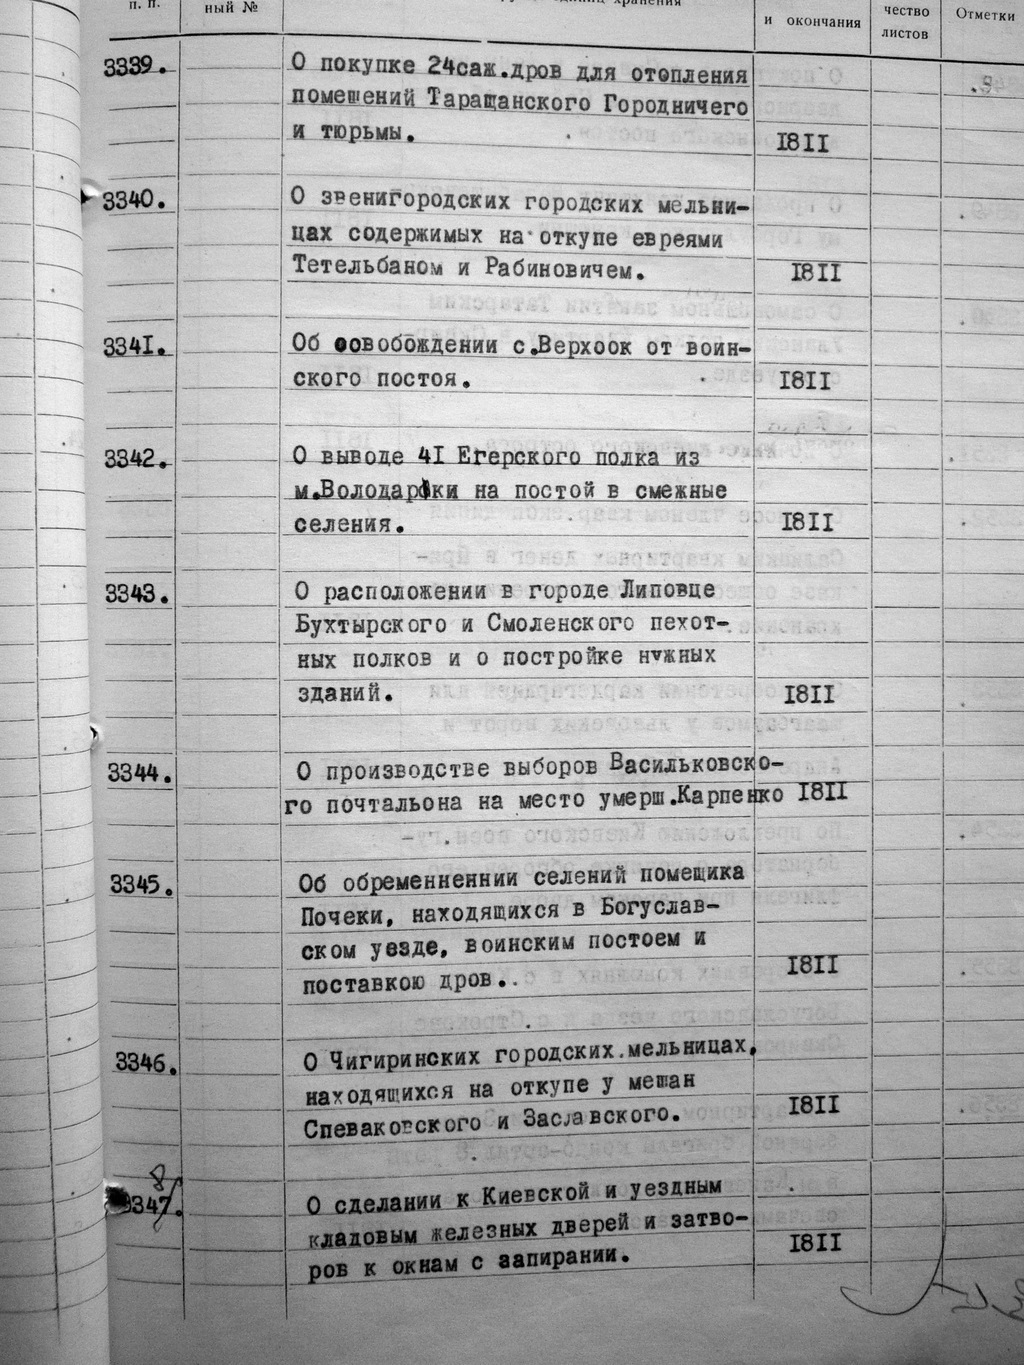 п. п.
ный №
хранения
и окончания
чество
листов
Отметки
3339.
О покупке 24саж.дров для отопления
помешений Таращанского Городничего
и тюрьмы.
I8II
3340.
О звенигородских городских мельни-
цах содержимых на откупе евреями
Тетельбаном и Рабиновичем.
I8II
334I.
Об освобождении с.Верхоок от воин-
ского постоя.
I8II
3342.
О выводе 4I Егерского полка из
м.Володарки на постой в смежные
селения.
I8II
3343.
О расположении в городе Липовце
Бухтырского и Смоленского пехот-
ных полков и о постройке нужных
зданий.
I8II
3344.
О производстве выборов Васильковско-
го почтальона на место умерш.Карпенко I8II
3345.
Об обременненнии селений помещика
Почеки, находящихся в Богуслав-
ском уезде, воинским постоем и
поставкою дров.
I8II
3346.
О Чигиринских городских мельницах,
находящихся на откупе у мешан
Спеваковского и Заславского.
I8II
8
3347.
О сделании к Киевской и уездным
кладовым железных дверей и затво-
ров к окнам с запирании.
I8II